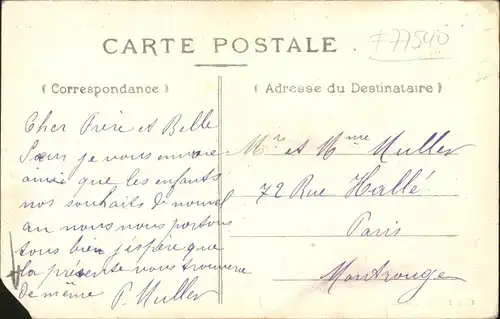 F77540
CARTE POSTALE.
( Correspondance )
( Adresse du Destinataire )
Cher Frère et Belle
Sœur je vous envoie
ainsi que les enfants
nos souhaits de nouvel
an nous nous portons
tous bien j'espère que
la présente vous trouvera
de même P. Muller
Mr et Mme Muller
72 Rue Hallé
Paris
Montrouge